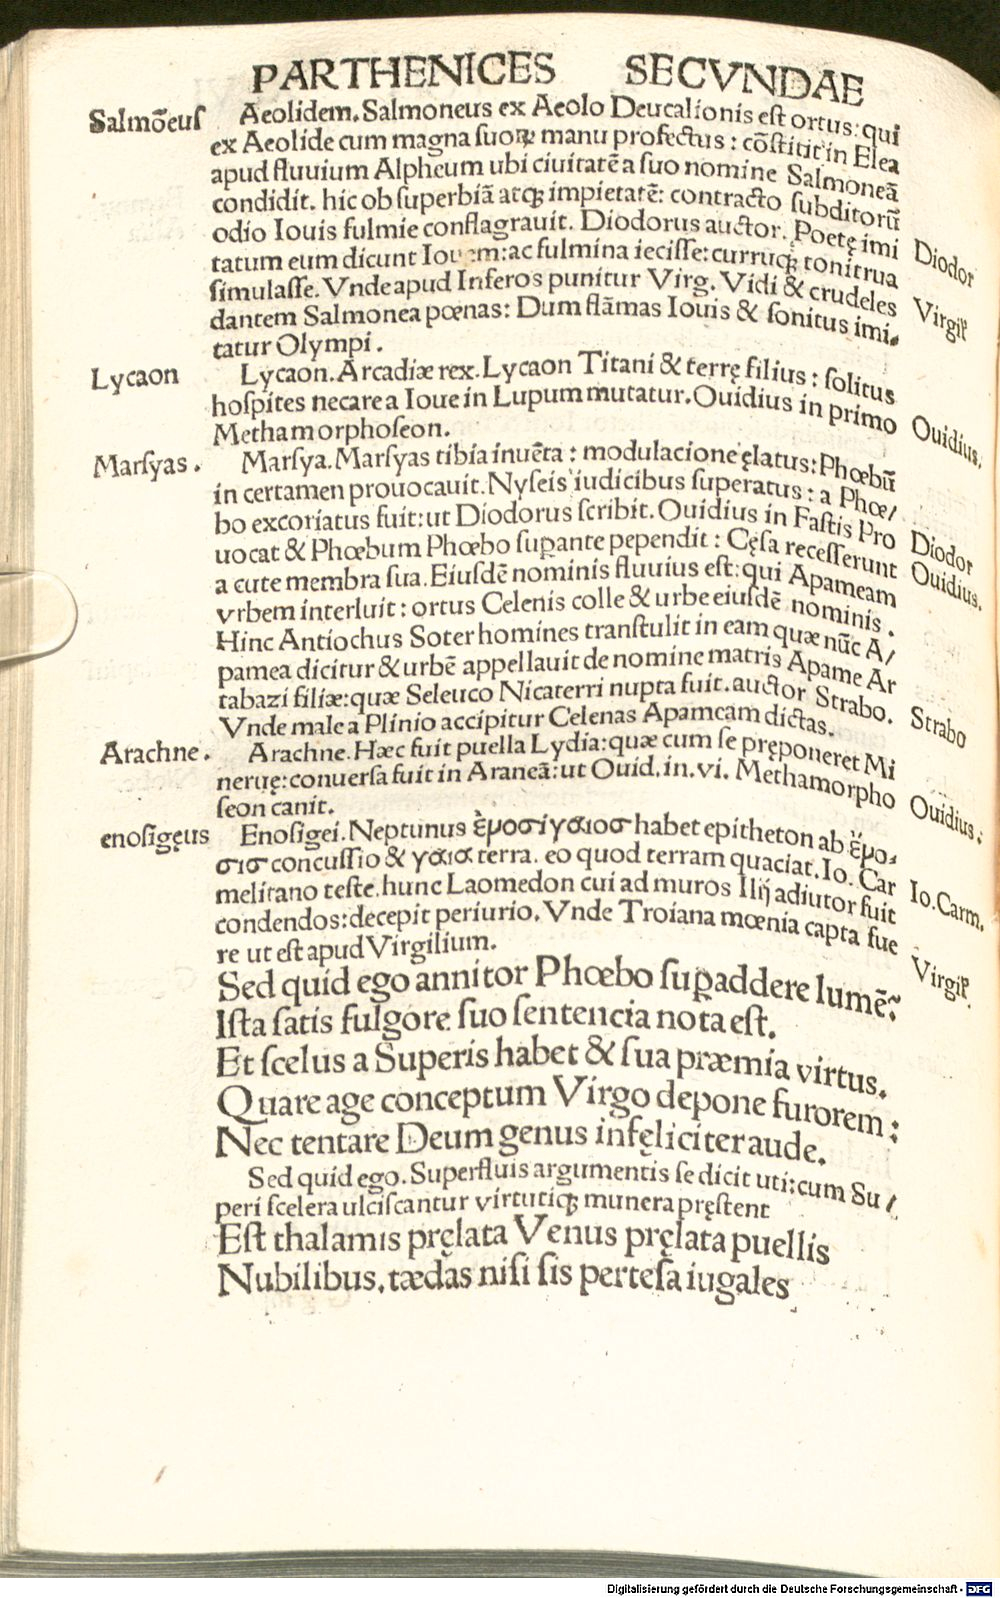 PARTHENICES SECVNDAE
Salmōeuſ Aeolidem. Salmoneus ex Aeolo Deucalionis eſt ortus: qui
ex Aeolide cum magna ſuoꝝ manu profectus: cōſtitit in Elea
apud fluuium Alpheum ubi ciuitatē a ſuo nomine Salmoneā
condidit. hic ob ſuperbiā atqꝫ impietatē: contracto ſubditorū
odio Iouis fulmie conflagrauit. Diodorus auctor. Poetę imi Diodor
tatum eum dicunt Iouem: ac fulmina ieciſſe: curruqꝫ tonitrua
ſimulaſſe. Vnde apud Inferos punitur Virg. Vidi & crudeles Virgiꝉ
dantem Salmonea pœnas: Dum flāmas Iouis & ſonitus imi
tatur Olympi.
Lycaon Lycaon. Arcadiæ rex. Lycaon Titani & terrę filius: ſolitus
hoſpites necare a Ioue in Lupum mutatur. Ouidius in primo Ouidius.
Methamorphoſeon.
Marſyas. Marſya. Marſyas tibia inuēta: modulacione ęlatus: Phœbū
in certamen prouocauit. Nyſeis iudicibus ſuperatus: a Phœ/
bo excoriatus fuit: ut Diodorus ſcribit. Ouidius in Faſtis Pro Diodor
uocat & Phœbum Phœbo ſuꝑante pependit: Cęſa receſſerunt Ouidius.
a cute membra ſua. Eiuſdē nominis fluuius eſt: qui Apameam
vrbem interluit: ortus Celenis colle & urbe eiuſdē nominis.
Hinc Antiochus Soter homines tranſtulit in eam quæ nūc A/
pamea dicitur & urbē appellauit de nomine matris Apame Ar
tabazi filiæ: quæ Seleuco Nicaterri nupta fuit. auctor Strabo. Strabo
Vnde male a Plinio accipitur Celenas Apameam dictas.
Arachne. Arachne. Hæc fuit puella Lydia: quæ cum ſe pręponeret Mi
neruę: conuerſa fuit in Araneā: ut Ouid. in. vi. Methamorpho Ouidius:
ſeon canit.
enoſigęus Enoſigei. Neptunus ἐμοσίγαιοσ habet epitheton ab ἔμο-
σισ concuſſio & γαῖα terra. eo quod terram quaciat. Io. Car Io. Carm.
melitano teſte. hunc Laomedon cui ad muros Ilij adiutor fuit
condendos: decepit periurio. Vnde Troiana mœnia capta fue
re ut eſt apud Virgilium. Virgiꝉ
Sed quid ego annitor Phœbo ſuꝑaddere lumē:
Iſta ſatis fulgore ſuo ſentencia nota eſt.
Et ſcelus a Superis habet & ſua præmia virtus.
Quare age conceptum Virgo depone furorem:
Nec tentare Deum genus infęliciter aude.
Sed quid ego. Superfluis argumentis ſe dicit uti: cum Su/
peri ſcelera ulciſcantur virtutiqꝫ munera pręſtent
Eſt thalamis pręlata Venus pręlata puellis
Nubilibus. tædas niſi ſis perteſa iugales
Digitalisierung gefördert durch die Deutsche Forschungsgemeinschaft - DFG